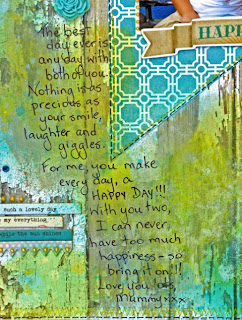 HAPP
The best
day ever is
any day with
both of you.
Nothing is as
precious as
your smile,
laughter and
giggles.
For me, you make
every day, a
HAPPY DAY!!!
With you two,
I can never
have too much
happiness - so
bring it on!!!
Love you lots,
Mummy xxx
such a lovely day
my everything
while the sun shines